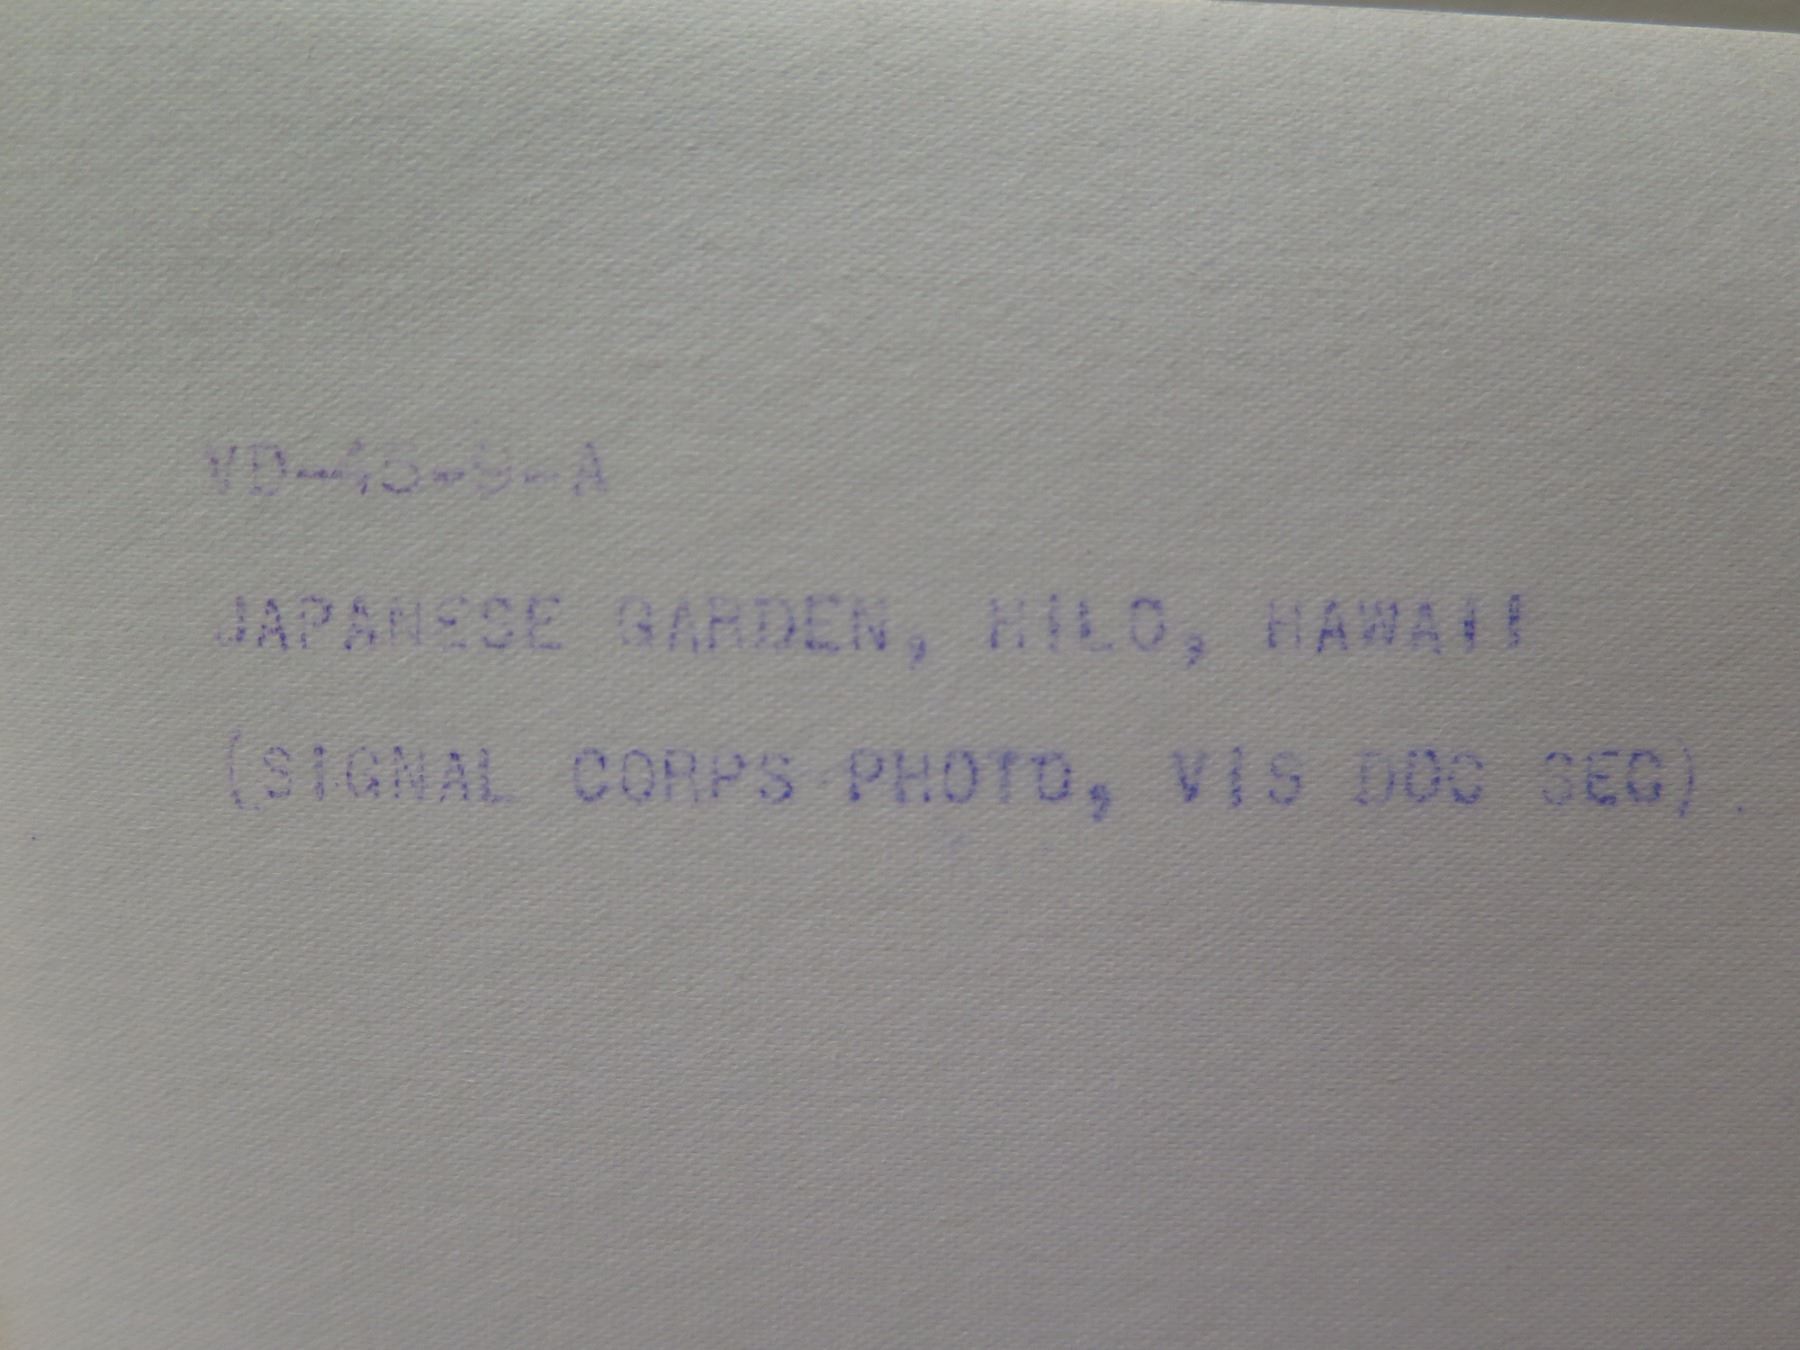 VD-45-9-A
JAPANESE GARDEN, HILO, HAWAII
(SIGNAL CORPS PHOTO, VIS DOC SEC).